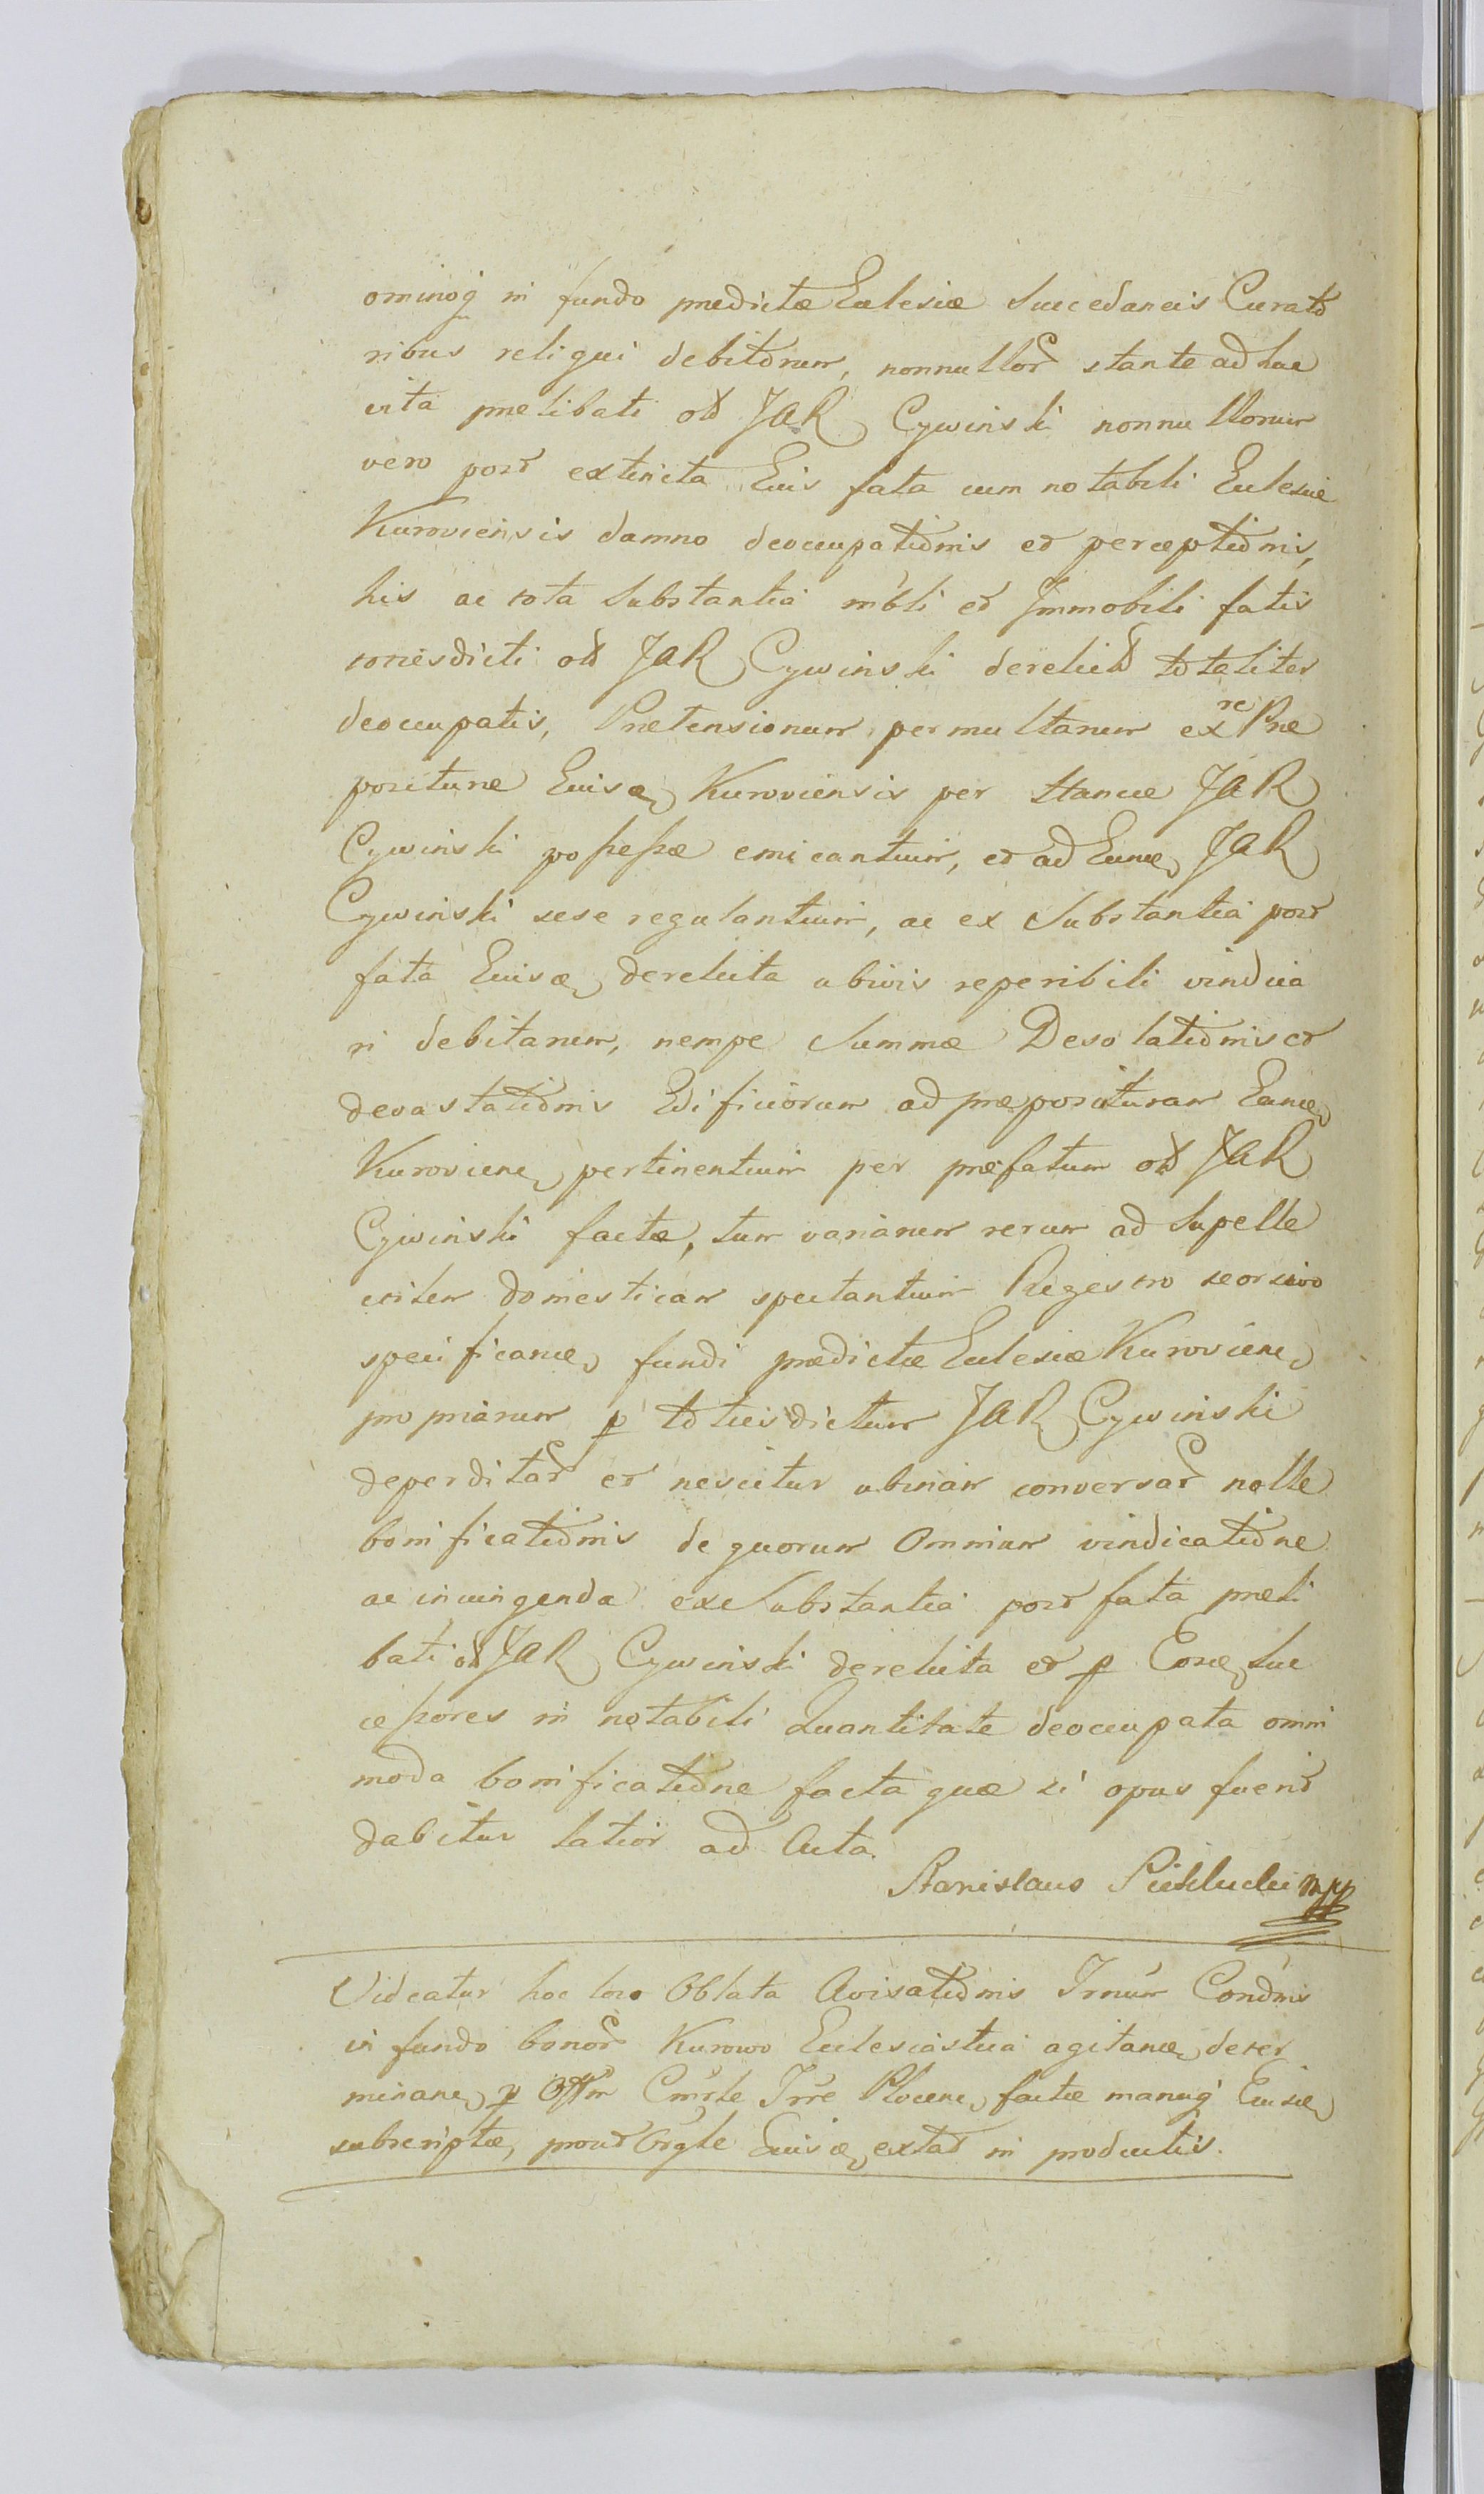 ominoq in fundo prædictæ Ecclesiæ Succedaneis Curato
ribus reliqui debitorum, nonnullor stante adhuc
vita prælibati olt JAR Cywinski nonnullorum
vero post extincta Eius fata cum notabili Ecclesiæ
Kuroviensis damno deoccupationis et perceptionis,
his ac tota Substantia mbli et Immobili fatis
totiesdicti olt JAR Cywinski derelicto totaliter
deoccupatis, Prætensionum permultarum ex re Præ
positurae Eiusd Kuroviensis per Eundem JAR
Cywinski possessæ emicantium, et ad Eund JAR
Cywinski sese regulantium, ac ex Substantia post
fata Eiusd derelicta ubivis reperibili vindica
ri debitarum, nempe Summæ Desolationis et
devastationis Edificiorum ad præposituram Eand
Kurovien pertinentium per præfatum olt JAR
Cywinski factæ, tum variarum rerum ad Supelle
ctilem domesticam spectantium Regestro seorsivo
specificand fundi prædictæ Ecclesiæ Kurovien
propriarum p totiesdictum JAR Cywinski
deperditar et nescitur ubinam conversar nolle
bonificationis de quorum Omnium vindicatione
ac iniungenda ex Substantia post fata præli
bati olt JAR Cywinski derelicta et p Eosd Suc
cessores in notabili Quantitate deoccupata omni
moda bonificatione facta quæ si opus fuerit
dabitur latior ad Acta.
Stanislaus mpp
Videatur hoc loco Oblata Avisationis Irnum Condnis
in fundo bonor Kurowo Ecclesiastica agitand deter
minand p Offm Cmrle Trre Plocen factæ manuq Eiusd
subscriptæ, prout Orgle Eiusd extat in productis.